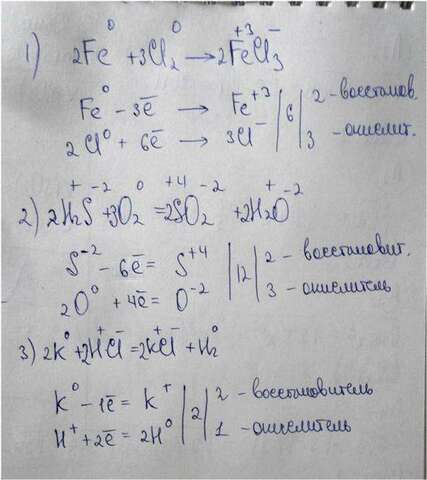 1) 2Fe⁰ + 3Cl₂⁰ → 2Fe⁺³Cl₃⁻
Fe⁰ - 3ē → Fe⁺³ | 6 | 2 - восстанов.
2Cl⁰ + 6ē → 3Cl⁻ | | 3 - окислит.
2) 2H₂⁺S⁻² + 3O₂⁰ = 2S⁺⁴O₂⁻² + 2H₂⁺O⁻²
S⁻² - 6ē = S⁺⁴ | 12 | 2 - восстановит.
2O⁰ + 4ē = O⁻² | | 3 - окислитель
3) 2K⁰ + 2H⁺Cl⁻ = 2K⁺Cl⁻ + H₂⁰
K⁰ - 1ē = K⁺ | 2 | 2 - восстановитель
H⁺ + 2ē = 2H⁰ | | 1 - окислитель